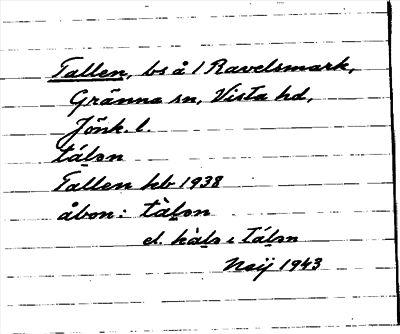 Tallen, bs å / Ravelsmark,
Gränna sn, Vista hd,
Jönk. l.
táḷən
Tallen hb 1938
åbon: tàḷən
el. kàḷs i Táḷən
NoiJ 1943